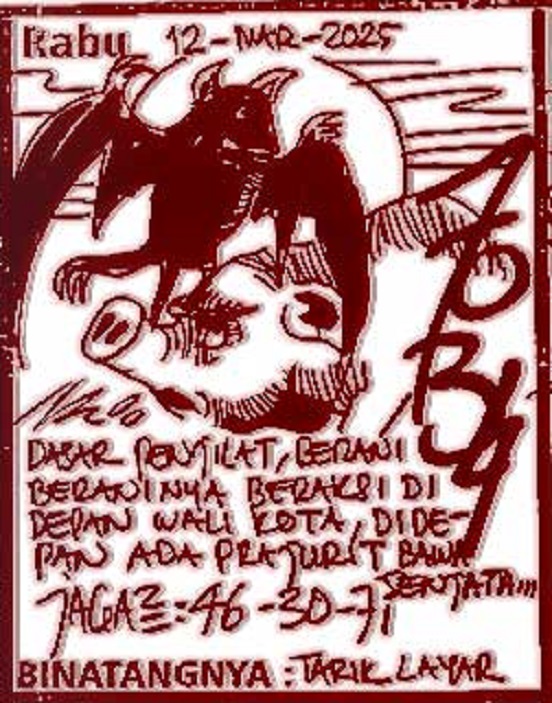 Rabu 12-MAR-2025
TOBY
DASAR PENYILAT, BERANI
BERANINYA BERAKSI DI
DEPAN WALI KOTA, DIDE-
PAN ADA PRAJURIT BAWA
SENJATA...
JAGA2 : 46-30-71
BINATANGNYA : TARIK LAYAR